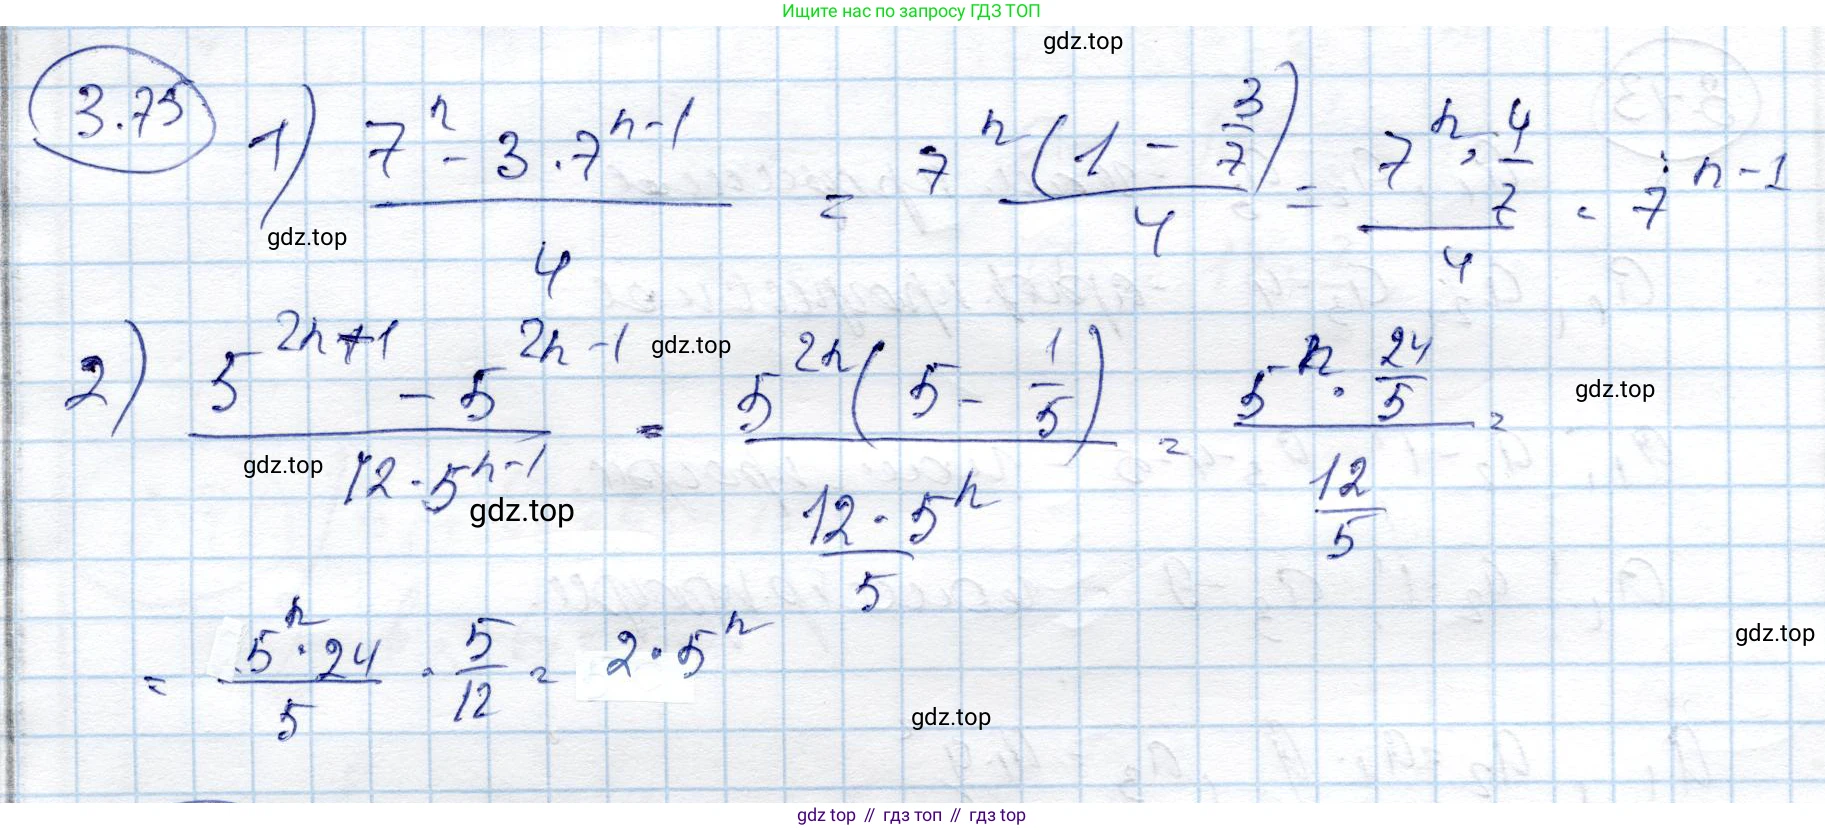 Ищите нас по запросу ГДЗ ТОП
gdz.top
3.75
1) (7^n - 3 · 7^(n-1)) / 4 = 7^n (1 - 3/7) / 4 = (7^n · 4/7) / 4 = 7^(n-1)
gdz.top
2) (5^(2n+1) - 5^(2n-1)) / (12 · 5^(n-1)) = 5^(2n) (5 - 1/5) / (12 · 5^n / 5) = (5^n · 24/5) / (12/5) =
gdz.top
gdz.top
gdz.top
gdz.top
= (5^n · 24) / 5 · 5/12 = 2 · 5^n
gdz.top
gdz.top
gdz top // гдз топ // гдз top